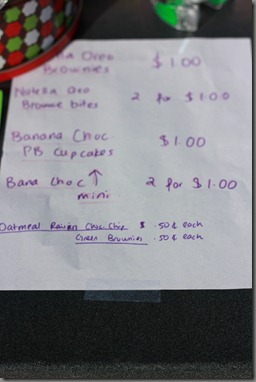 Oreo $1.00
Brownies
Nutella Oreo 2 for $1.00
Brownie bites
Banana Choc. $1.00
PB Cupcakes
Bana Choc ↑ 2 for $1.00
mini
Oatmeal Raisin Choc. Chip $ .50¢ each
Green Brownies .50¢ each